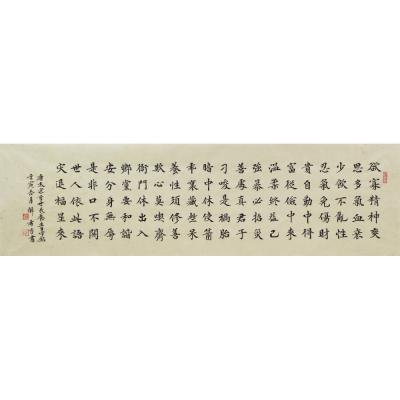 欲寡精神爽
思多氣血衰
少飲不亂性
忍氣免傷財
貴自勤中得
富從儉中來
溫柔終益己
強暴必招災
善處真君子
刁唆是禍胎
暗中休使箭
乖裏藏些呆
養性須修善
欺心莫喫齋
衙門休出入
鄉黨要和諧
安分身無辱
是非口不開
世人依此語
灾退福星來